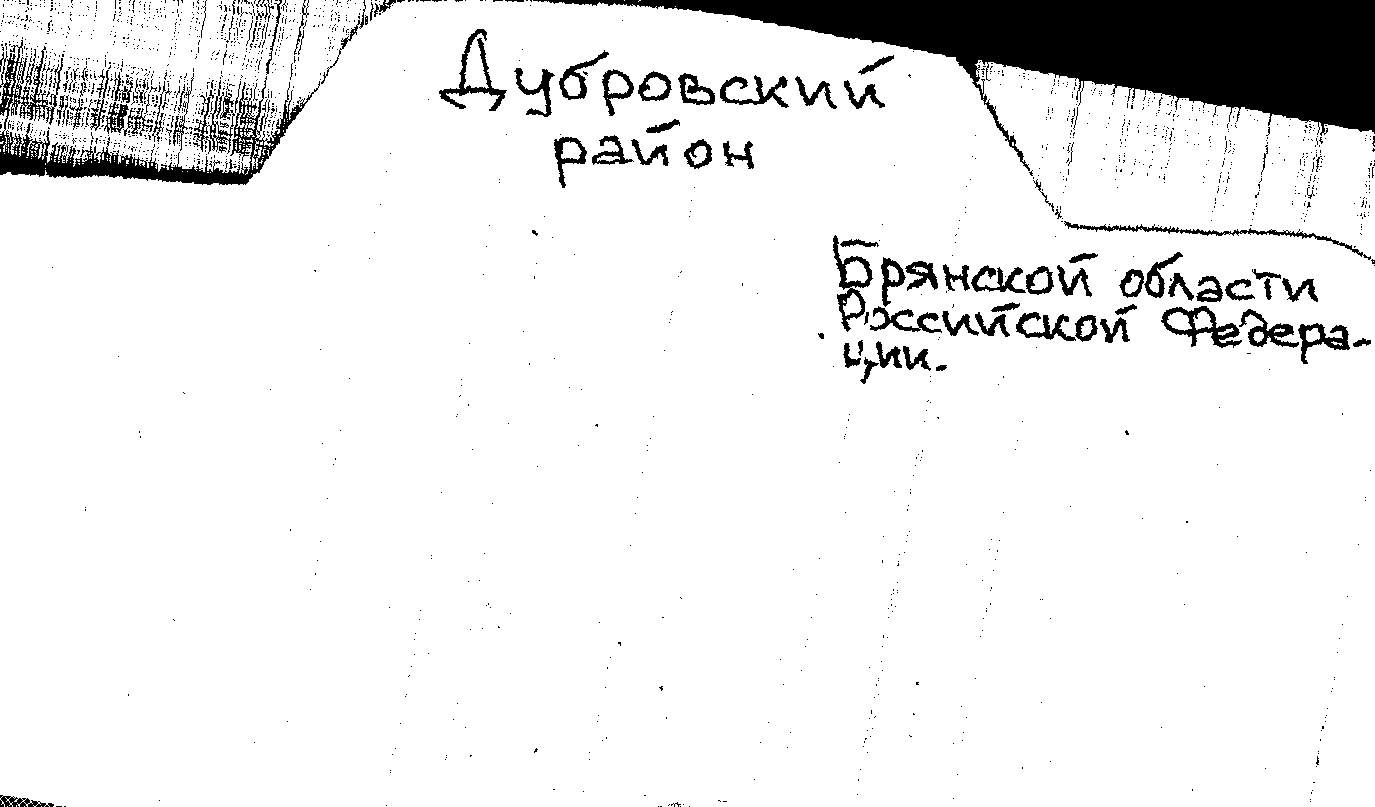 Дубровский
район
Брянской области
Российской Федера-
ции.